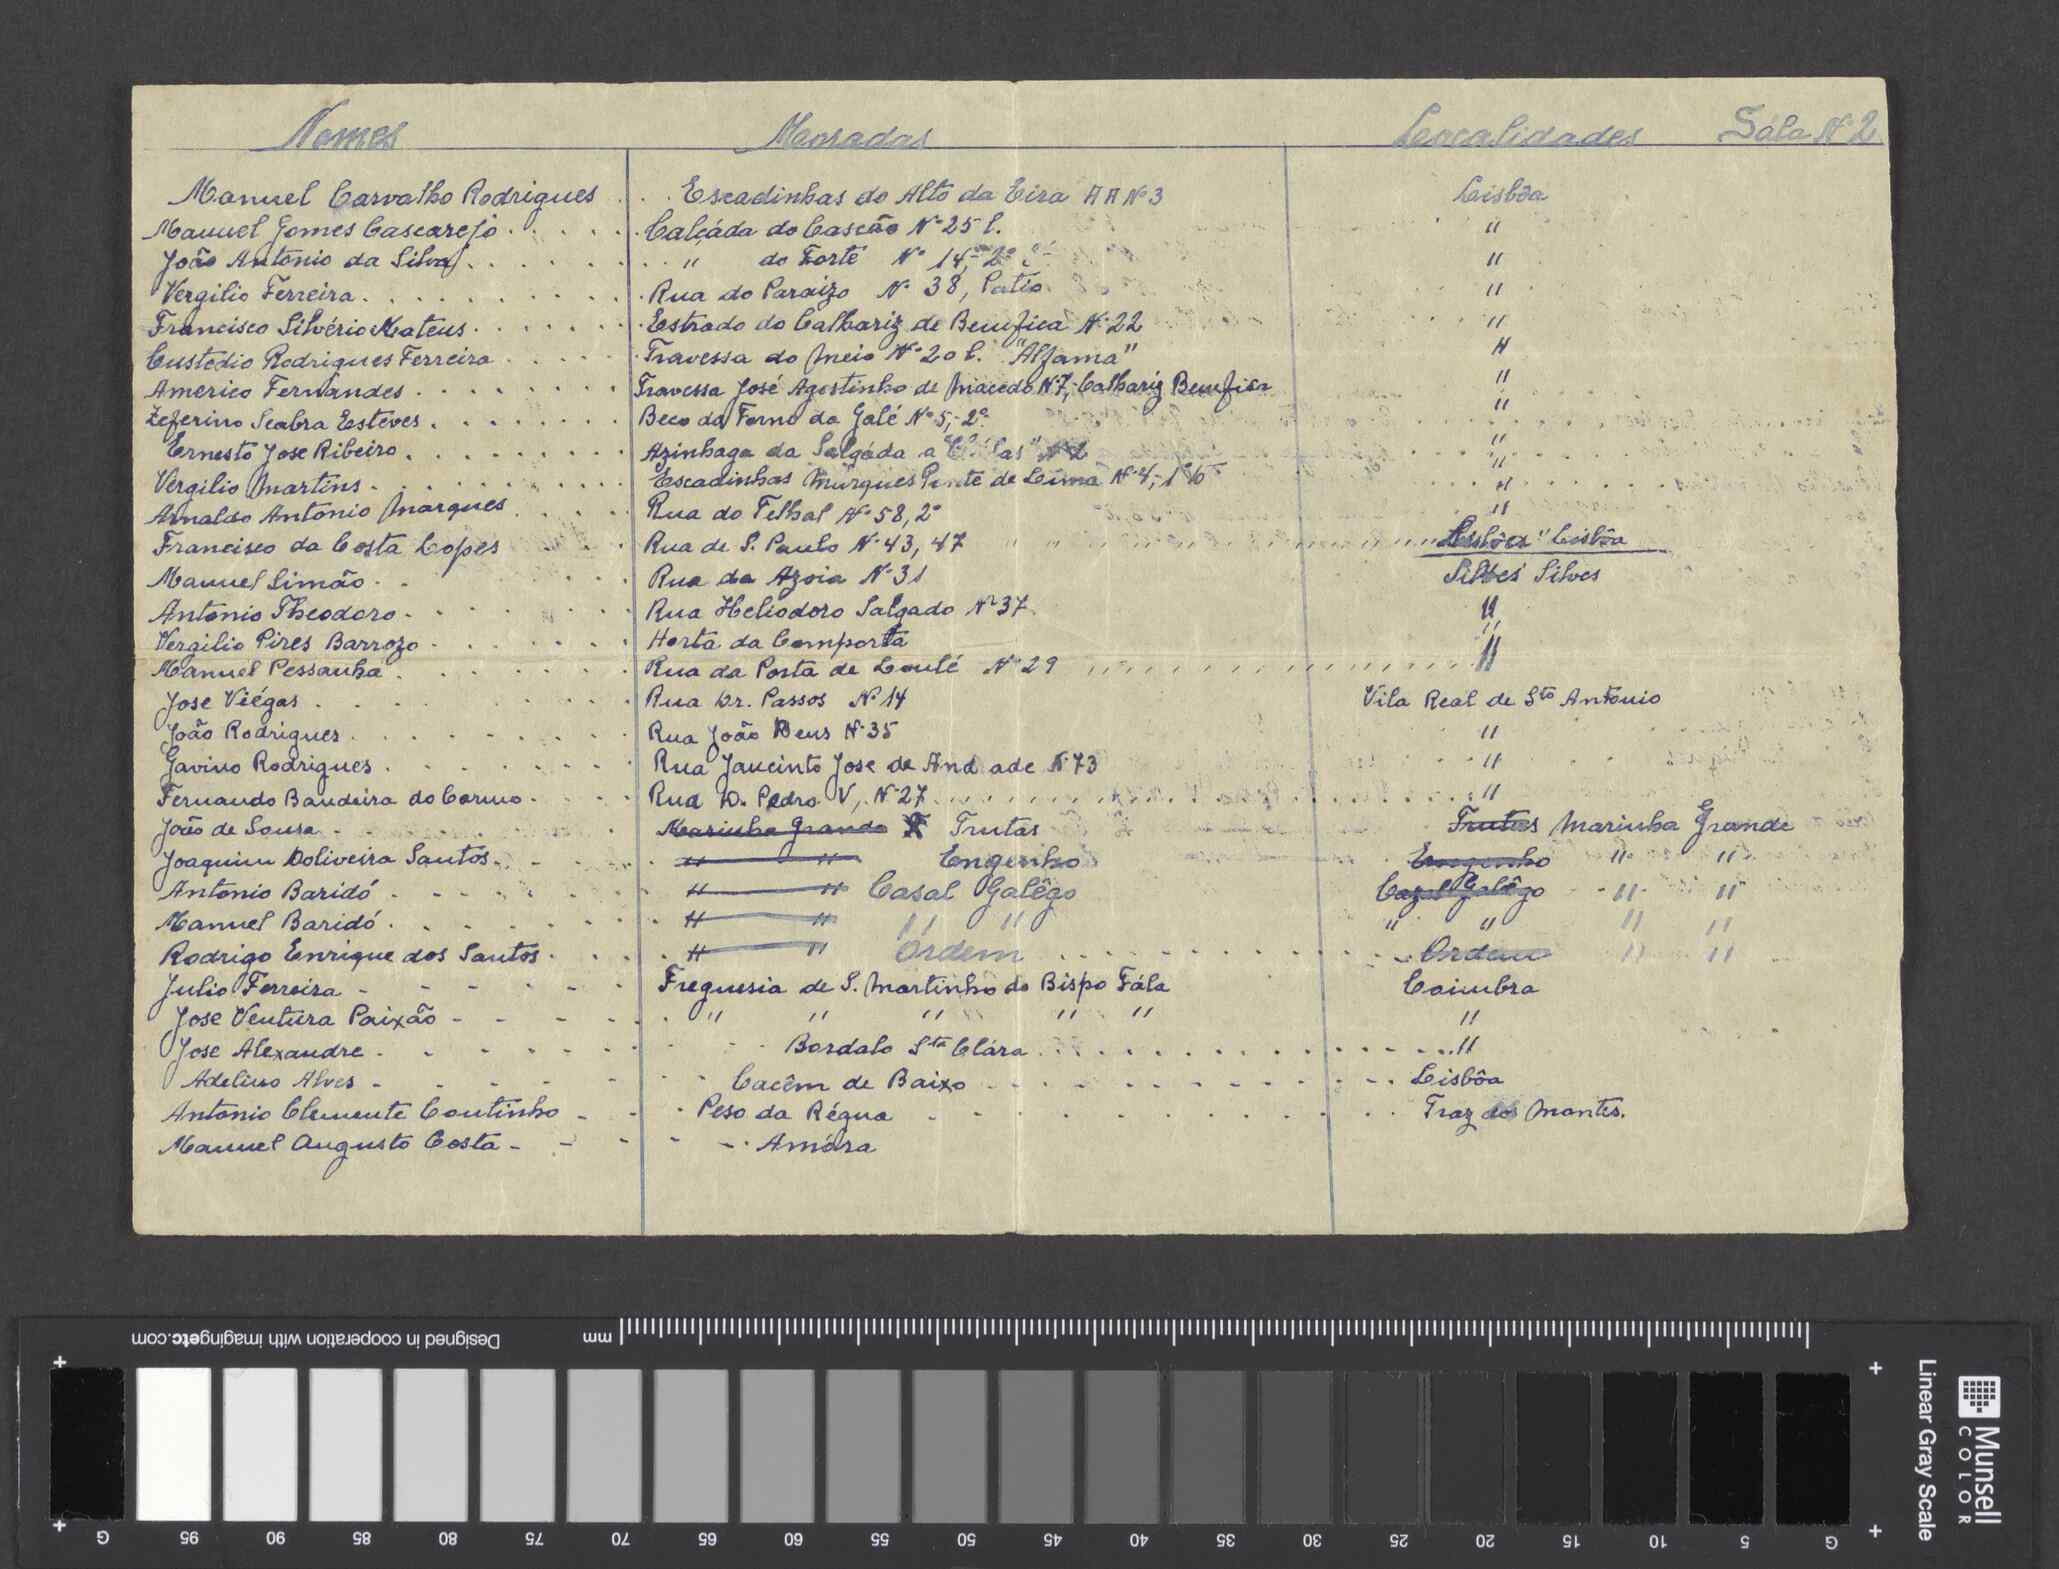 Nomes Moradas Localidades Sála Nº 2
Manuel Carvalho Rodrigues . . . Escadinhas do Alto da Eira A A Nº 3 Lisbôa
Manuel Gomes Cascarejo . . . . . Calçáda do Cascão Nº 25 l. "
João Antonio da Silva . . . . . . " do Forte Nº 14, 2º "
Vergilio Ferreira . . . . . . . . Rua do Paraizo Nº 38, Patio "
Francisco Silvério Mateus . . . . . Estrada do Calhariz de Benfica Nº 22 "
Custodio Rodrigues Ferreira . . . . Travessa do Meio Nº 20 l. "Alfama" "
Americo Fernandes . . . . . . . Travessa José Agostinho de Macedo Nº 7, Calhariz Benfica "
Zeferino Seabra Esteves . . . . . . Beco do Forno da Galé Nº 5, 2º "
Ernesto Jose Ribeiro . . . . . . . Azinhaga da Salgáda a "
Vergilio Martins . . . . . . . . Escadinhas Marques Ponte de Lima Nº 4, 1º "
Arnaldo Antonio Marques . . . . Rua do Telhal Nº 58, 2º "
Francisco da Costa Lopes . . . Rua de S. Paulo Nº 43, 47 Lisbôa " Lisbôa
Manuel Simão . . . . . Rua da Azoia Nº 31 Silves Silves
Antonio Theodoro . . . . . . . Rua Heliodoro Salgado Nº 37. "
Vergilio Pires Barrozo . . . . . . Horta da Comporta "
Manuel Pessanha . . . . . . . Rua da Porta de Loulé Nº 29 "
Jose Viégas . . . . . . . . . Rua Dr. Passos Nº 14 Vila Real de Sto Antonio
João Rodrigues . . . . . . . . Rua João Deus Nº 35 "
Gavino Rodrigues . . . . . . . Rua Jaucinto Jose de And ade Nº 73 "
Fernando Bandeira do Carmo . . . . Rua D. Pedro V, Nº 27 . . . . . . . . "
João de Sousa - . . . . . Marinha Grande Trutas Trutas Marinha Grande
Joaquim Doliveira Santos . . . . " " Engenho Engenho " "
Antonio Baridó . . . . . . . " " Casal Galêgo Cazal Galêgo " "
Manuel Baridó . . . . . . . " " " " " " " "
Rodrigo Enrique dos Santos . . . . " " Ordem . . . . . . . . Ordem " "
Julio Ferreira - - - - - - Freguesia de S. Martinho do Bispo Fála Coimbra
Jose Ventura Paixão - - - - . " " " " " "
Jose Alexandre . . . . . . . Bordalo Sta Clára . . . . . . . . . . . "
Adelino Alves - - - - - - - Cacêm de Baixo - - - - - - - - Lisbôa
Antonio Clemente Coutinho - - . Peso da Régua - - - - - - - - Traz dos Montes.
Manuel Augusto Costa - - - - -. Amóra
Designed in cooperation with imagingetc.com
mm
Linear Gray Scale
Munsell
COLOR
G 95 90 85 80 75 70 65 60 55 50 45 40 35 30 25 20 15 10 5 G